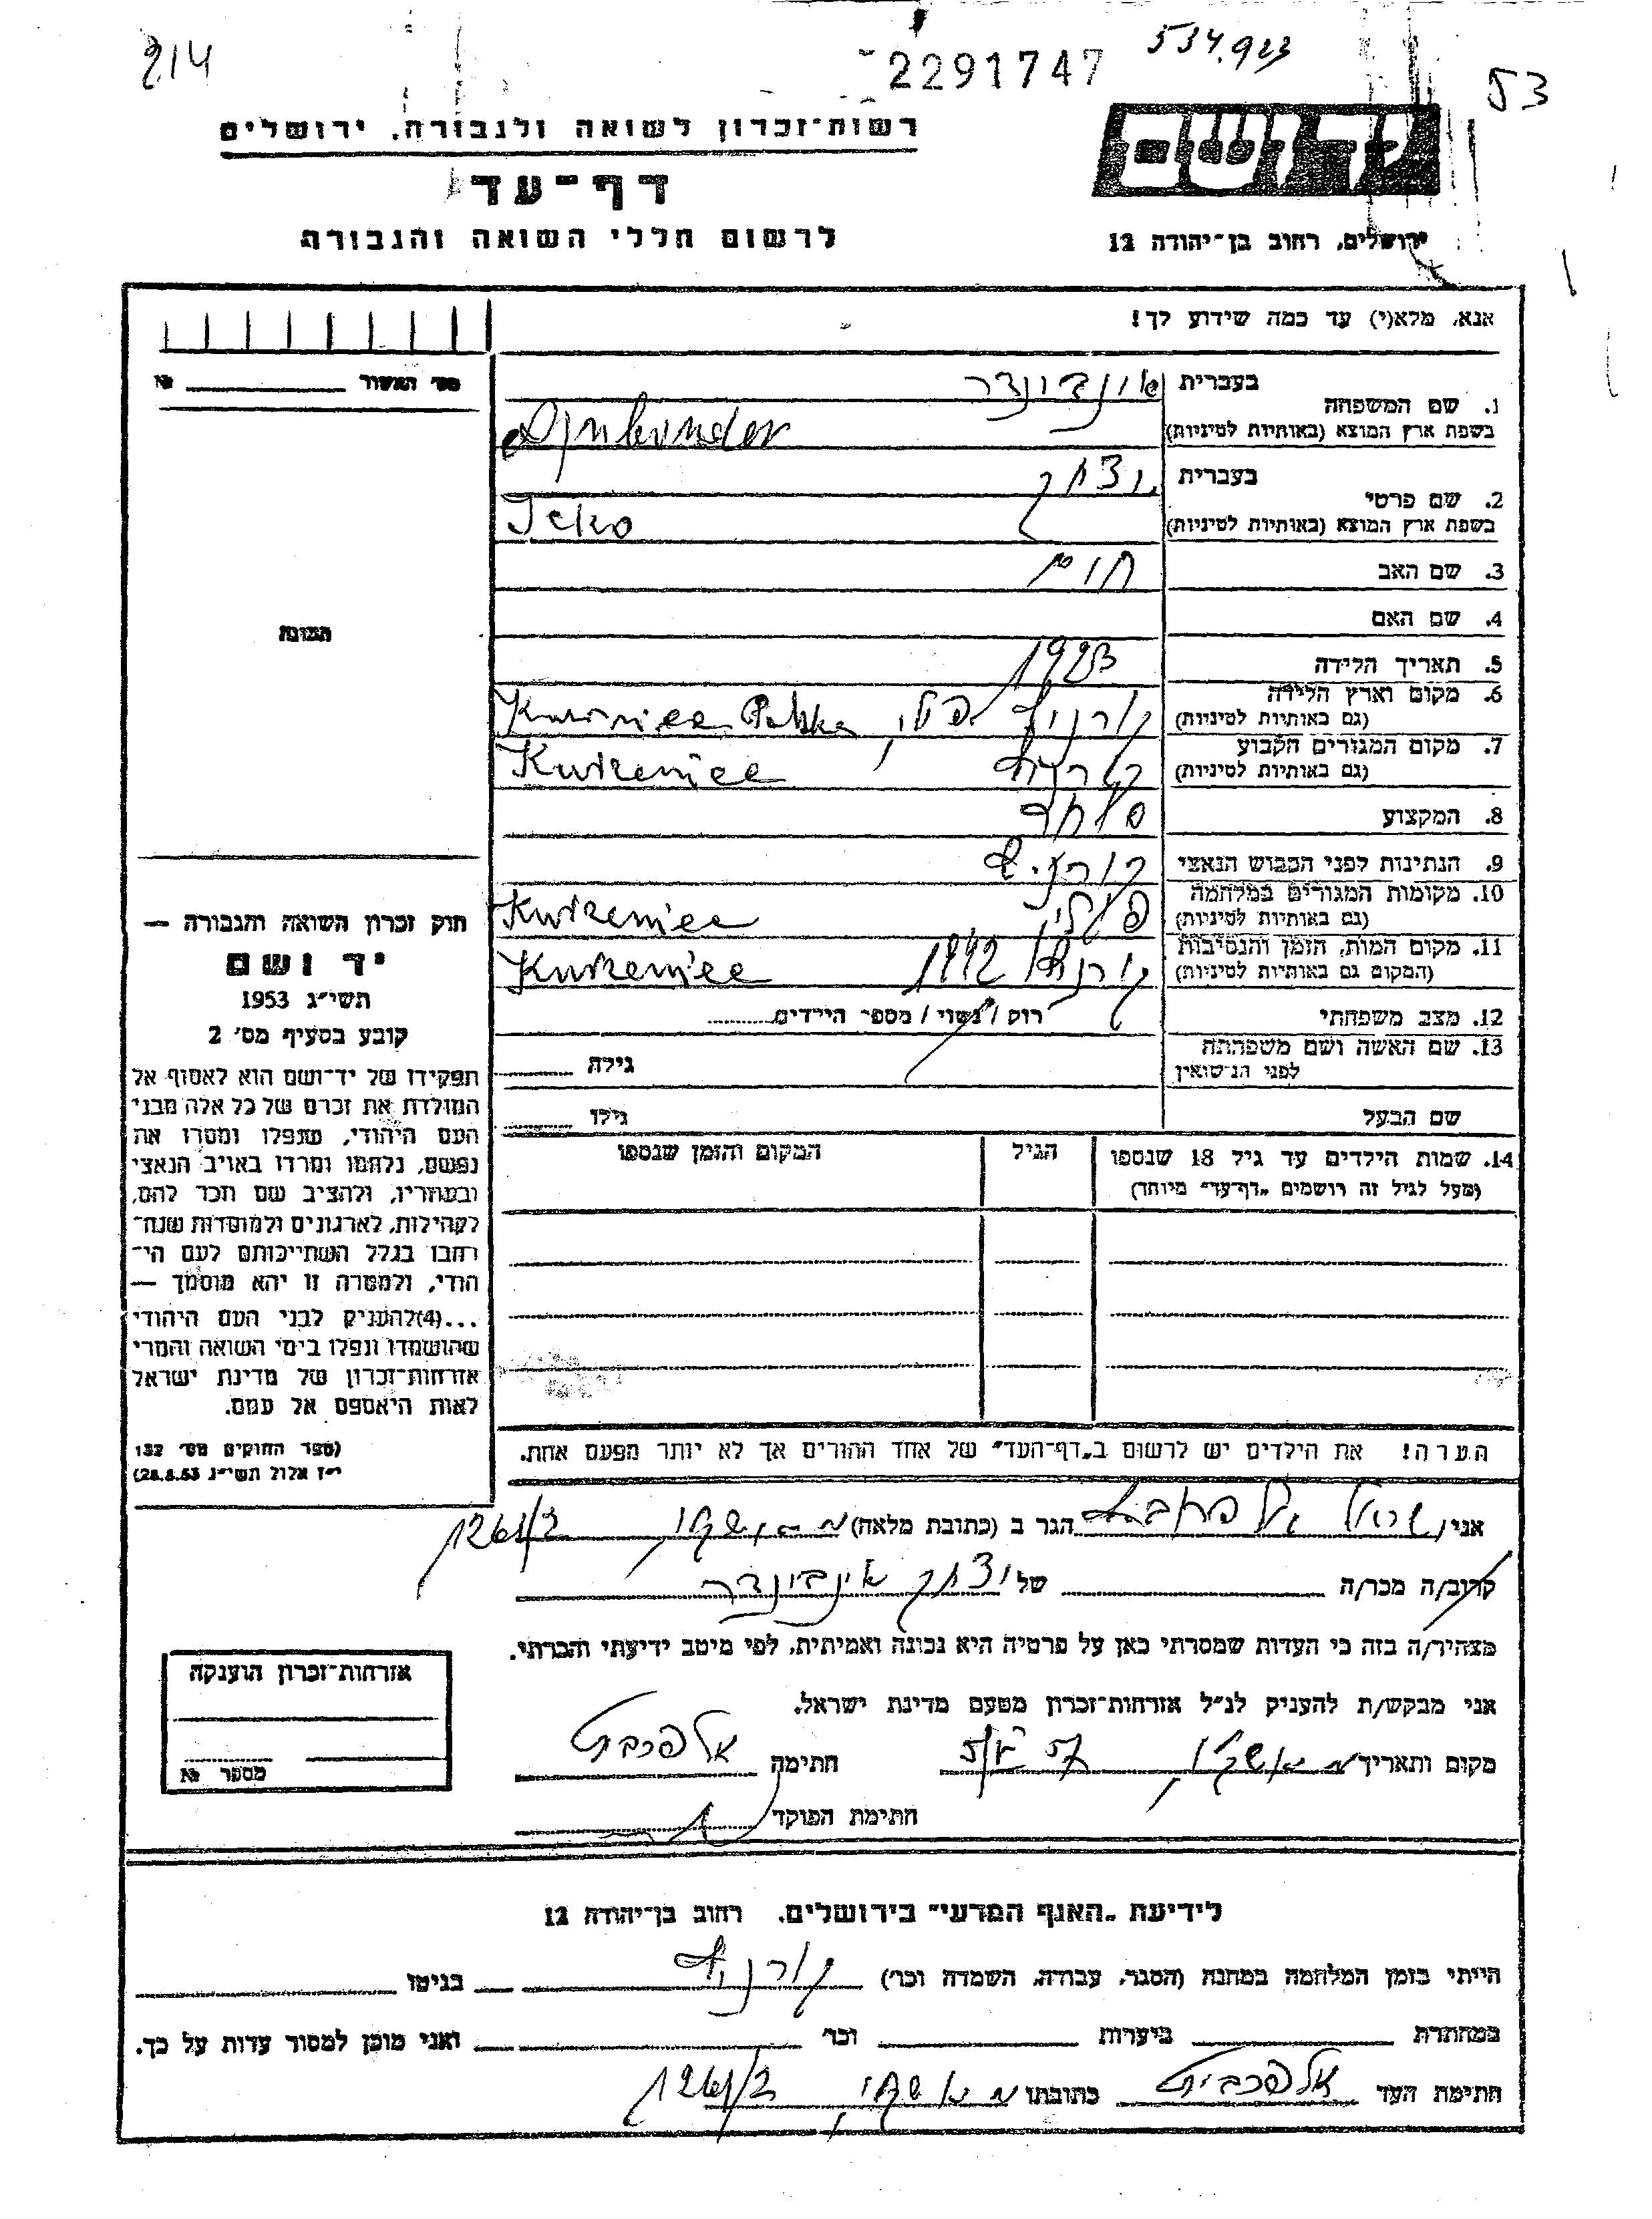 214
2291747
534.923
53
רשות־זכרון לשואה ולגבורה, ירושלים
יד ושם
דף־עד
לרשום חללי השואה והגבורה
ירושלים, רחוב בן־יהודה 12
אנא, מלא(י) עד כמה שידוע לך!
מס' האשור №
1. שם המשפחה
בעברית אינבינדר
בשפת ארץ המוצא (באותיות לטיניות)
2. שם פרטי
בעברית יצחק
בשפת ארץ המוצא (באותיות לטיניות) Icko
3. שם האב חיים
4. שם האם
5. תאריך הלידה 1923
6. מקום וארץ הלידה
(גם באותיות לטיניות) קורניץ פולין Polska
7. מקום המגורים הקבוע
(גם באותיות לטיניות) קורניץ Kurzeniec
8. המקצוע סוחר
9. הנתינות לפני הכבוש הנאצי
10. מקומות המגורים במלחמה
(גם באותיות לטיניות) Kurzeniec
11. מקום המות, הזמן והנסיבות
(המקום גם באותיות לטיניות) קורניץ 1942 Kurzeniec
12. מצב משפחתי רוק / נשוי / מספר הילדים
13. שם האשה ושם משפחתה
לפני הנישואין גילה
שם הבעל גילו
14. שמות הילדים עד גיל 18 שנספו
(מעל לגיל זה רושמים „דף־עד" מיוחד)
הגיל
המקום והזמן שנספו
הערה! את הילדים יש לרשום ב„דף־העד" של אחד ההורים אך לא יותר מפעם אחת.
תמונה
חוק זכרון השואה והגבורה —
יד ושם
תשי"ג 1953
קובע בסעיף מס' 2
תפקידו של יד־ושם הוא לאסוף אל
המולדת את זכרם של כל אלה מבני
העם היהודי, שנפלו ומסרו את
נפשם, נלחמו ומרדו באויב הנאצי
ובעוזריו, ולהציב שם וזכר להם,
לקהילות, לארגונים ולמוסדות שנח־
רבו בגלל השתייכותם לעם הי־
הודי, ולמטרה זו יהא מוסמך —
...(4)להעניק לבני העם היהודי
שהושמדו ונפלו בימי השואה והמרי
אזרחות־זכרון של מדינת ישראל
לאות היאספם אל עמם.
(ספר החוקים מס' 132
י"ז אלול תשי"ג 28.8.53)
אני, הגר ב (כתובת מלאה)
קרוב/ה מכר/ה של יצחק אינבינדר
מצהיר/ה בזה כי העדות שמסרתי כאן על פרטיה היא נכונה ואמיתית, לפי מיטב ידיעתי והכרתי.
אני מבקש/ת להעניק לנ"ל אזרחות־זכרון מטעם מדינת ישראל.
מקום ותאריך חתימה אלפרביץ
חתימת הפוקד
אזרחות־זכרון הוענקה
מספר №
לידיעת „האגף המדעי" בירושלים, רחוב בן־יהודה 12
הייתי בזמן המלחמה במחנה (הסגר, עבודה, השמדה וכו') קורניץ בגיטו
במחתרת ביערות וכו' ואני מוכן למסור עדות על כך.
חתימת העד אלפרביץ כתובתו